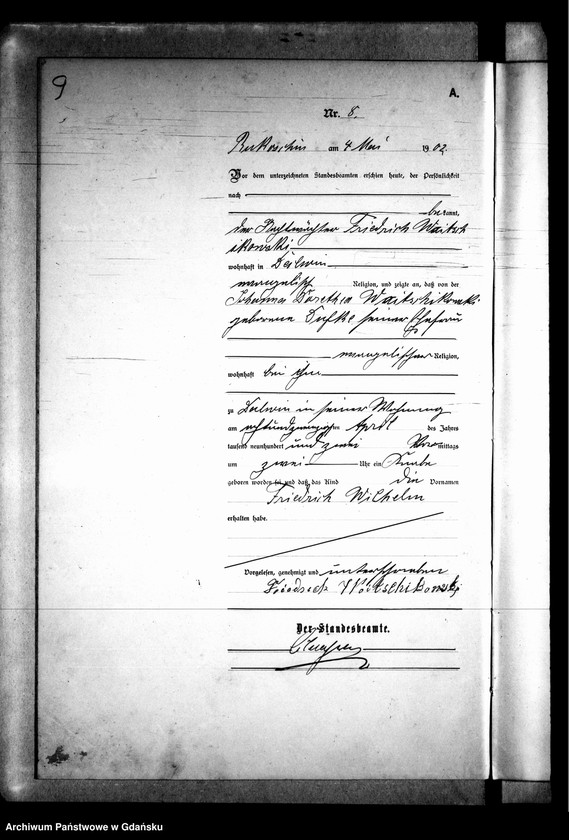 9
A.
Nr. 8.
am 4 Mai 1902
Vor dem unterzeichneten Standesbeamten erschien heute, der Persönlichkeit
nach
bekannt,
der Friedrich Waitsch
ikowski
wohnhaft in
evangelisch Religion, und zeigte an, daß von der
Johanna Dorothea Waitschikowski
geborene seiner Ehefrau
evangelischer Religion,
wohnhaft bei ihm
zu in seiner Wohnung
am achtundzwanzigsten April des Jahres
tausend neunhundert und zwei Vormittags
um zwei Uhr ein Knabe
geboren worden sei und daß das Kind die Vornamen
Friedrich Wilhelm
erhalten habe.
Vorgelesen, genehmigt und unterschrieben
Friedrich
Der Standesbeamte.
Archiwum Państwowe w Gdańsku